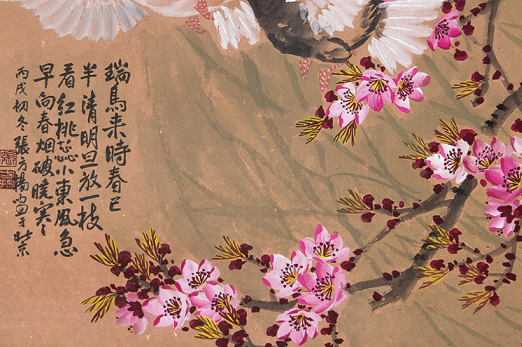 瑞鳥来時春已
半清明旦放一枝
看红桃蕊小東風急
早向春烟破曉寒
丙戌初冬張方